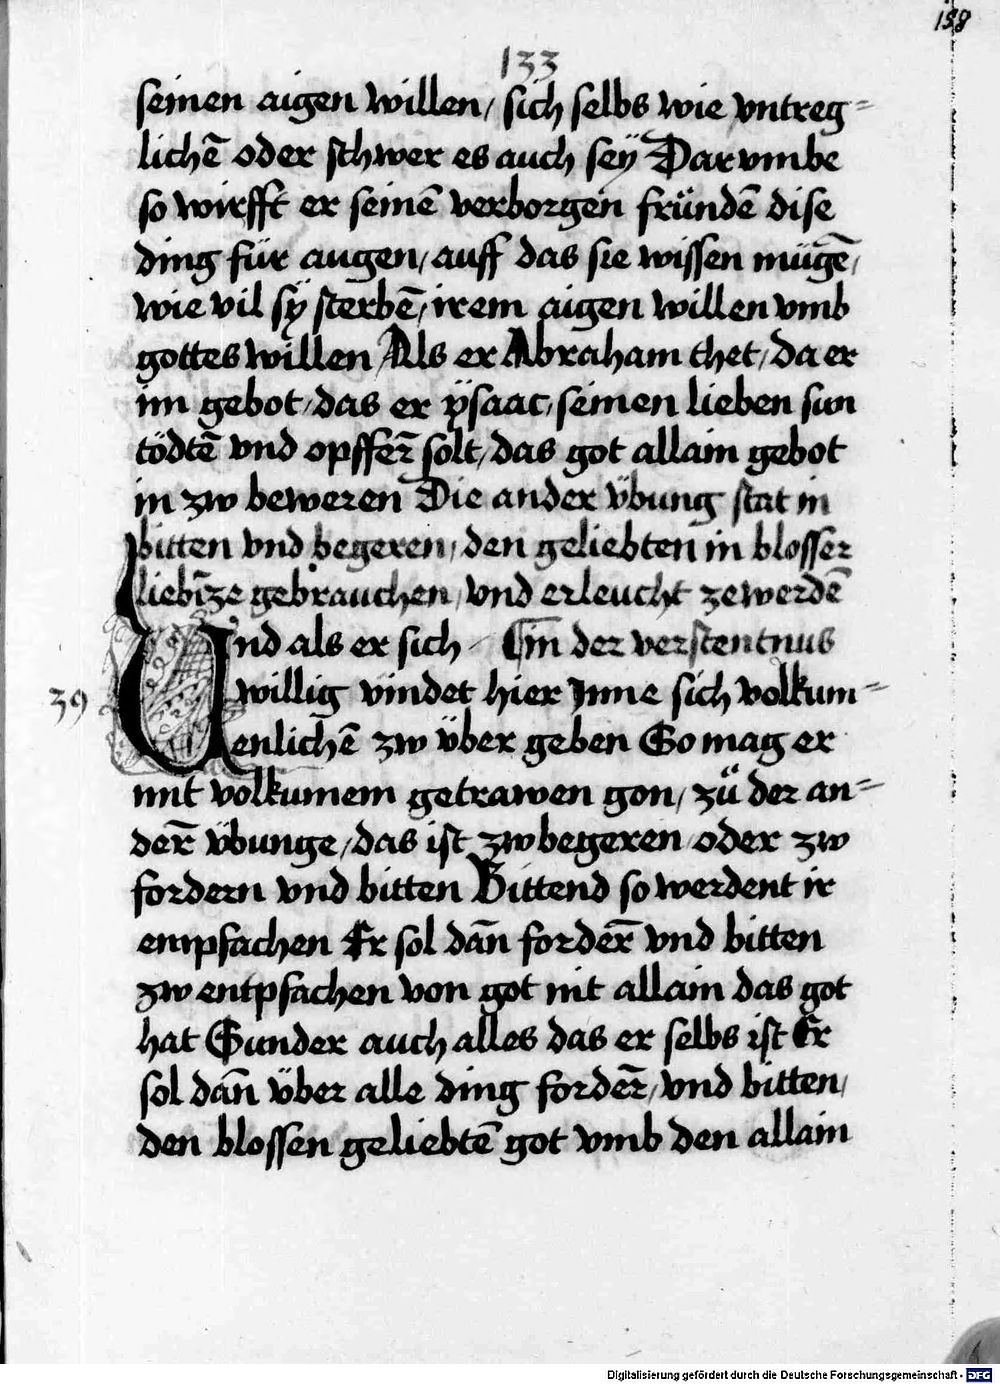 158
133
seinen aigen willen/ sich selbs wie vntreg=
lichē oder schwer es auch seÿ Darvmbe
so wirfft er seinē verborgen fründē dise
ding für augen/ auff das sie wissen mügē/
wie vil sÿ sterbē/ irem aigen willen vmb
gottes willen Als er Abraham thet/ da er
im gebot/ das er ÿsaac/ seinen lieben sun
tödtē vnd opffer̄ solt/ das got allain gebot
in zw beweren Die ander v̈bung stat in
bitten vnd begeren/ den geliebten in blosser
lieb ze gebrauchen/ vnd erleucht zewerdē
Vnd als er sich / in der verstentnus
39
willig vindet hier jnne sich volkum=
enlichē zw v̈ber geben So mag er
mit volkumem getrawen gon/ zů der an=
der̄ v̈bunge/ das ist zw begeren oder zw
fordern vnd bitten Bittend so werdent ir
empfachen Er sol dān forder̄ vnd bitten
zw entpfachen von got nit allain das got
hat Sunder auch alles das er selbs ist Er
sol dān v̈ber alle ding forder̄/ vnd bitten/
den blossen geliebtē got vmb den allain
Digitalisierung gefördert durch die Deutsche Forschungsgemeinschaft - DFG